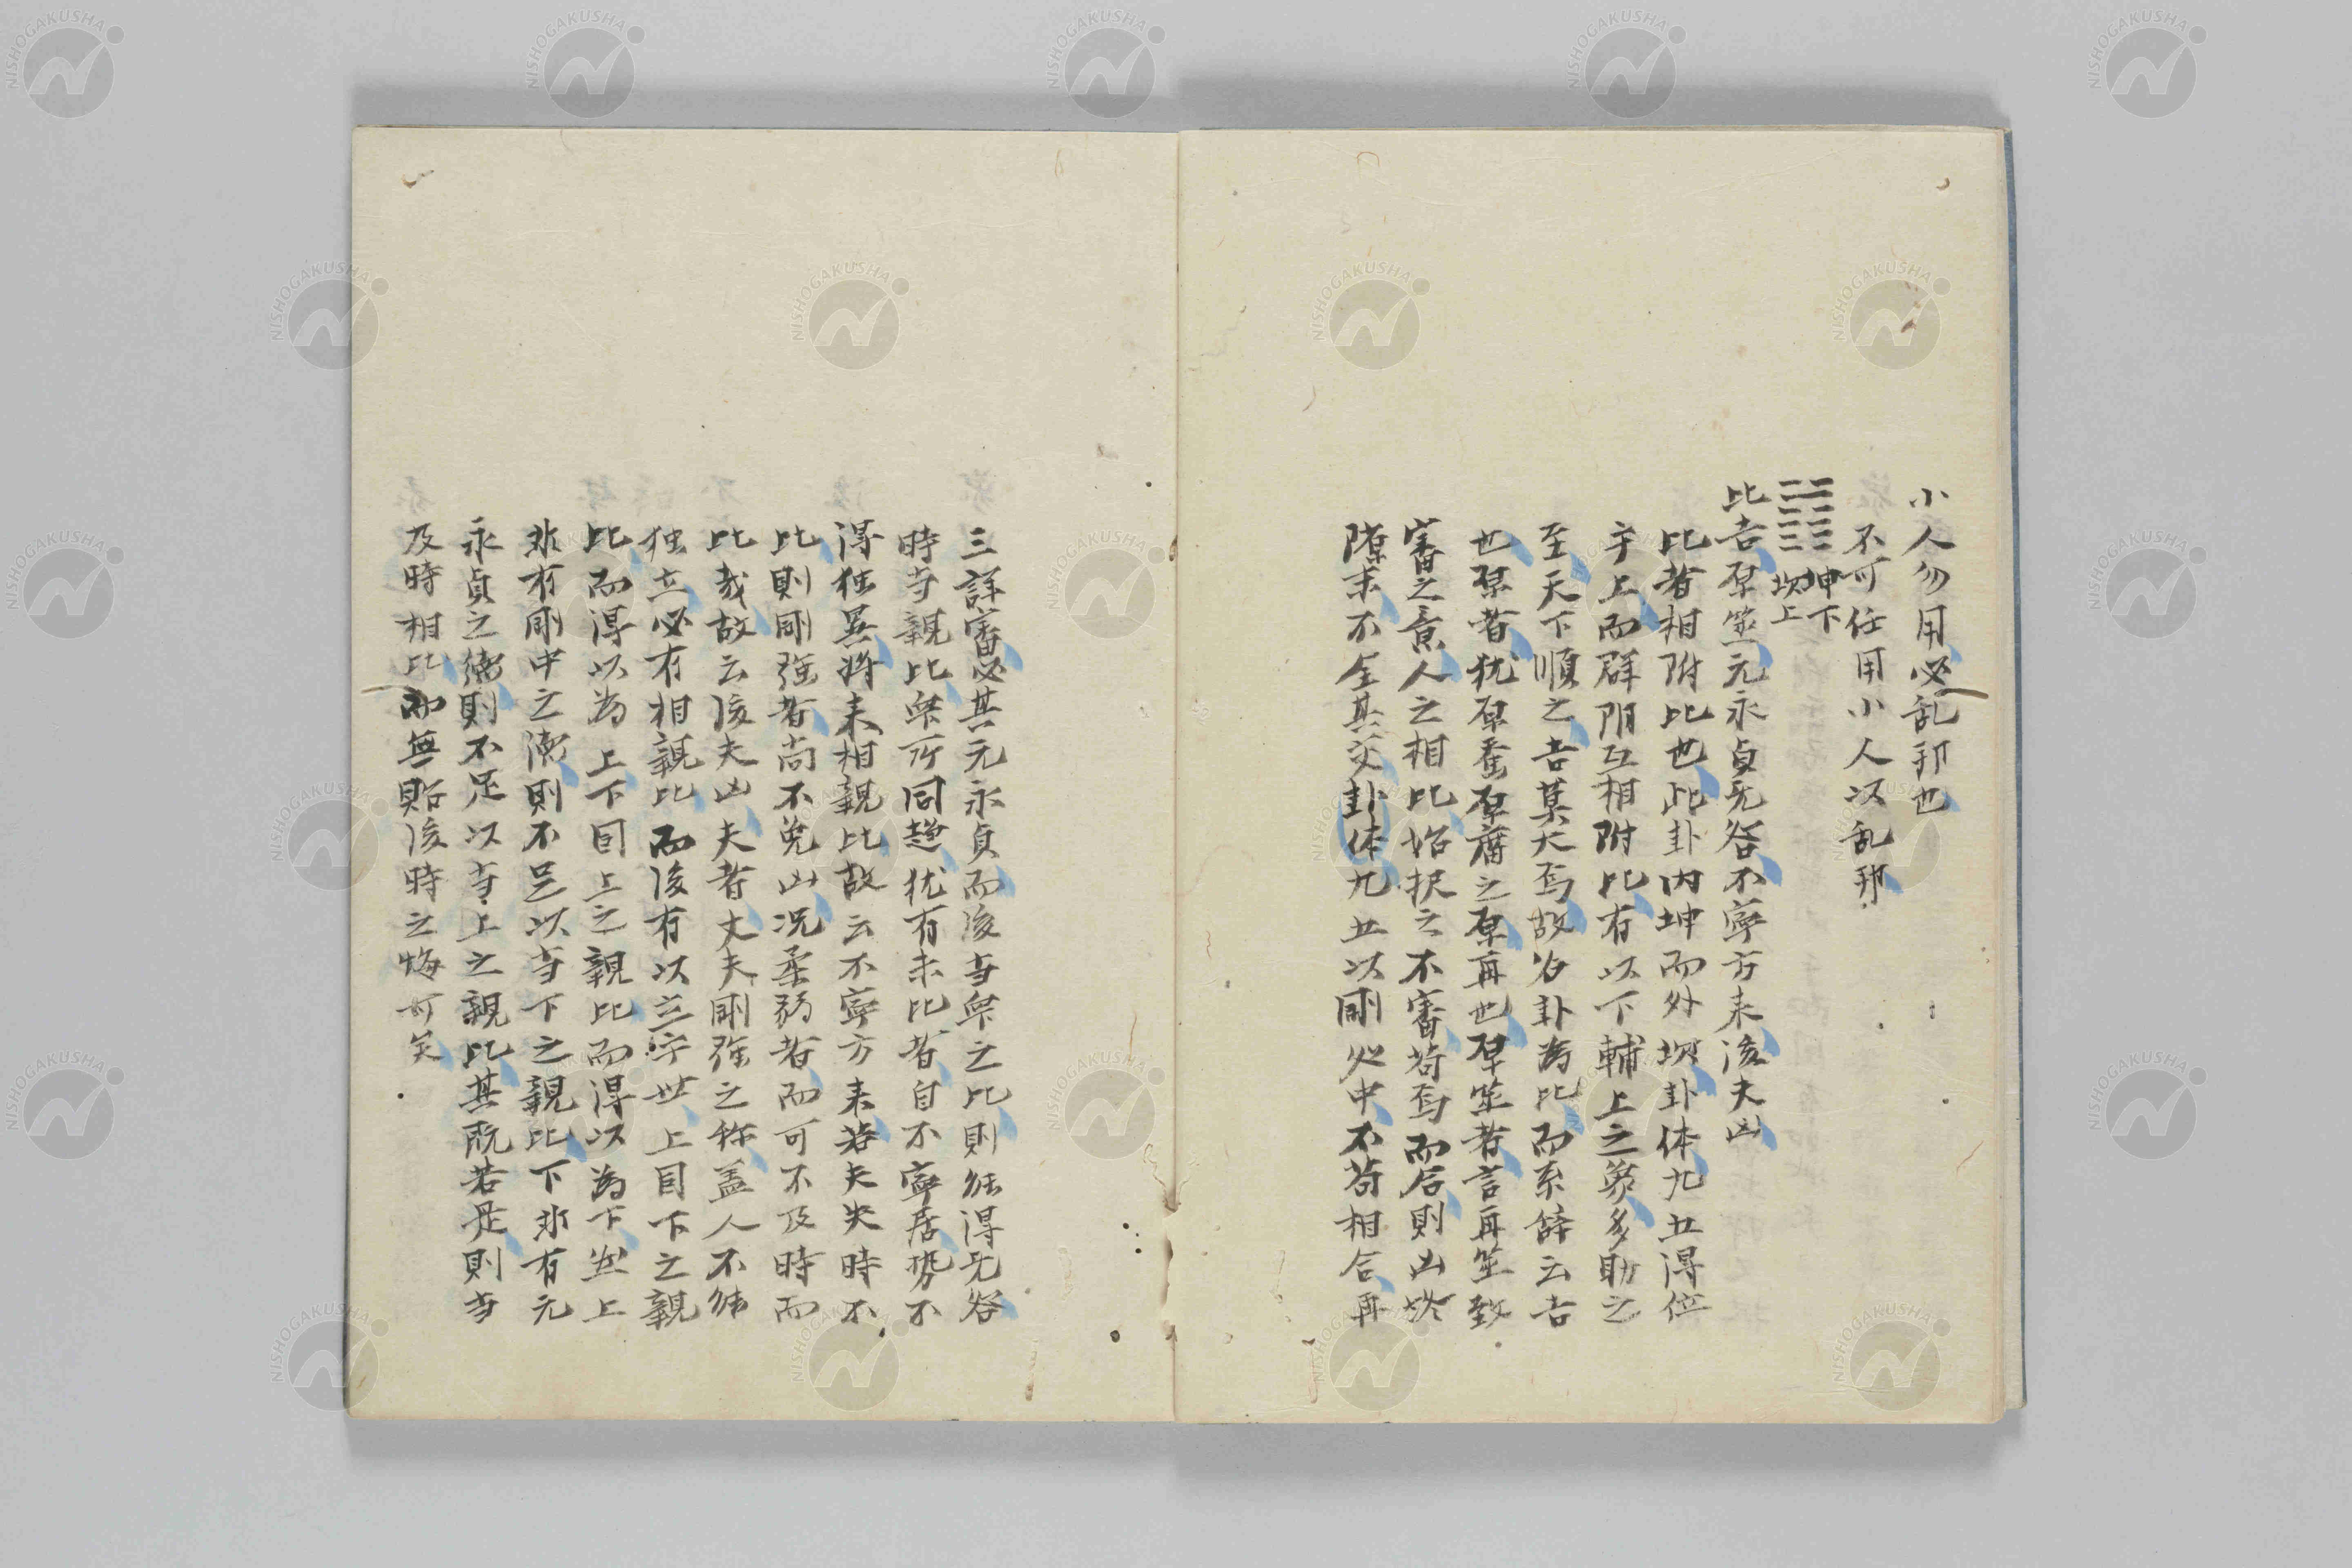 小人勿用必乱邦也
不可任用小人以乱邦
坤下
坎上
比吉原筮元永貞无咎不寧方来後夫凶
比者相附比也此卦内坤而外坎卦体九五得位
乎上而群阴互相附比有以下輔上之象多助之
至天下順之吉莫大焉故名卦為比而系辞云吉
也原者犹原蚕原廟之原再也原筮者言再筮致
審之意人之相比始択之不審苟焉而合則凶終
隙末不全其交卦体九五以剛処中不苟相合再
三詳審必其元永貞而後与衆之比則能得无咎
時寺親比衆所同趋犹有未比者自不寧居势不
得独異将来相親比故云不寧方来若夫失時不
比則剛强者尚不免凶况柔弱者而可不及時而
比哉故云後夫凶夫者丈夫剛强之称盖人不能
独立必有相親比而後有以立乎世上因下之親
比而得以為上下因上之親比而得以為下然上
非有剛中之徳則不足以寺下之親比下非有元
永貞之徳則不足以寺上之親比其既若是則寺
及時相比而無貽後時之悔可矣
NISHOGAKUSHA